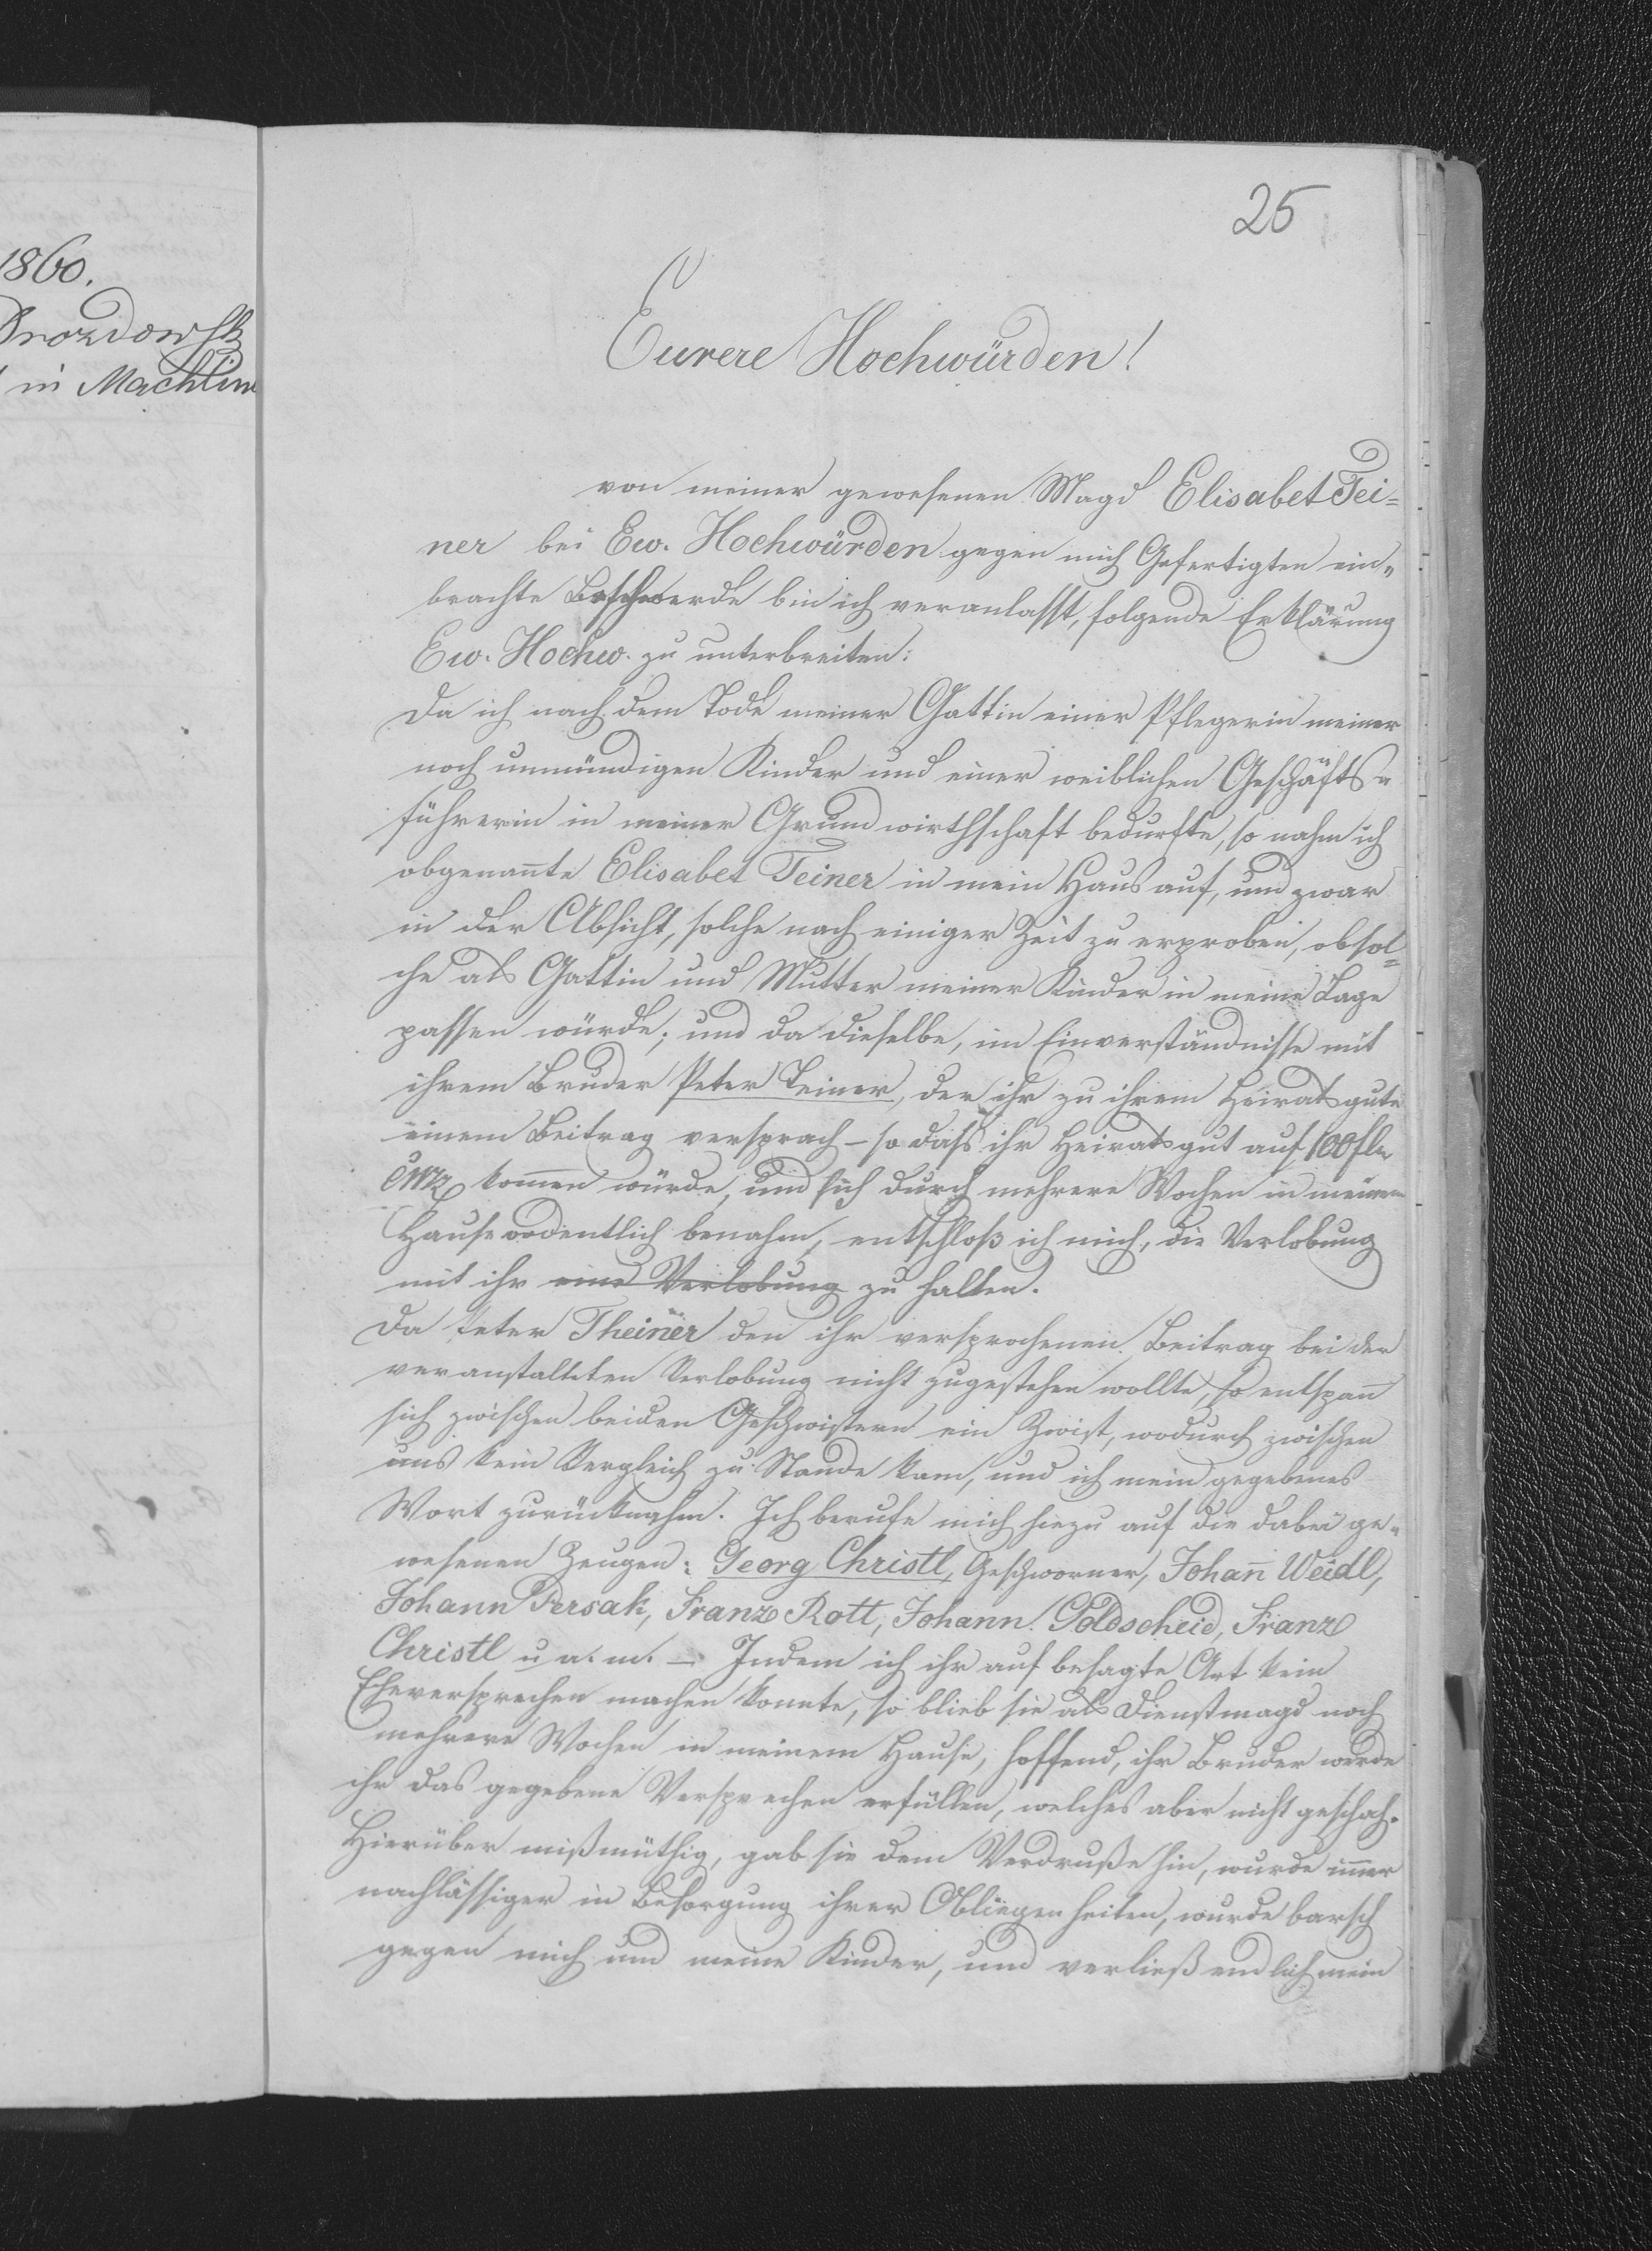 1860.
in Machlin
25
Eurere Hochwürden!
von meiner gewesenen Magd Elisabet Tei=
ner bei Ew. Hochwürden gegen mich Gefertigten ein„
brachte Beschwerde bin ich veranlasst, folgende Erklärung
Ew. Hochw. zu unterbreiten:
Da ich nach dem Tode meiner Gattin einer Pflegerin meiner
noch unmündigen Kinder und einer weiblichen Geschäfts„
führerin in meiner Grundwirthschaft bedurfte, so nahm ich
obgenañte Elisabet Teiner in mein Haus auf, und zwar
in der Absicht, solche nach einiger Zeit zu erproben, ob sol=
che als Gattin und Mutter meiner Kinder in meine Lage
passen würde; und da dieselbe, im Einverständnisse mit
ihrem Bruder Peter Teiner, der ihr zu ihrem Heiratsgute
einem Beitrag versprach – so daß ihr Heiratsgut auf 100 fl
CMz kom̄en würde, und sich durch mehrere Wochen in meinem
Hause ordentlich benahm, entschloß ich mich, die Verlobung
mit ihr eine Verlobung zu halten.
Da Peter Theiner den ihr versprochenen Beitrag bei der
veranstalteten Verlobung nicht zugestehen wollte, so entspañ
sich zwischen beiden Geschwistern ein Zwist, wodurch zwischen
uns kein Vergleich zu Stande kam, und ich mein gegebenes
Wort zurücknahm. Ich berufe mich hiezu auf die dabei ge„
wesenen Zeugen: Georg Christl, Geschworner, Johañ Weidl,
Johann Persak, Franz Rott, Johann Goldscheid, Franz
Christl u a. m. – Indem ich ihr auf besagte Art kein
Eheversprechen machen konnte, so blieb sie als Dienstmagd noch
mehrere Wochen in meinem Hause, hoffend, ihr Bruder werde
ihr das gegebene Versprechen erfüllen, welches aber nicht geschah.
Hierüber mißmüthig, gab sie dem Verdruße hin, wurde im̄er
nachlässiger in Besorgung ihrer Obliegenheiten, wurde barsch
gegen mich und meine Kinder, und verließ endlich mein